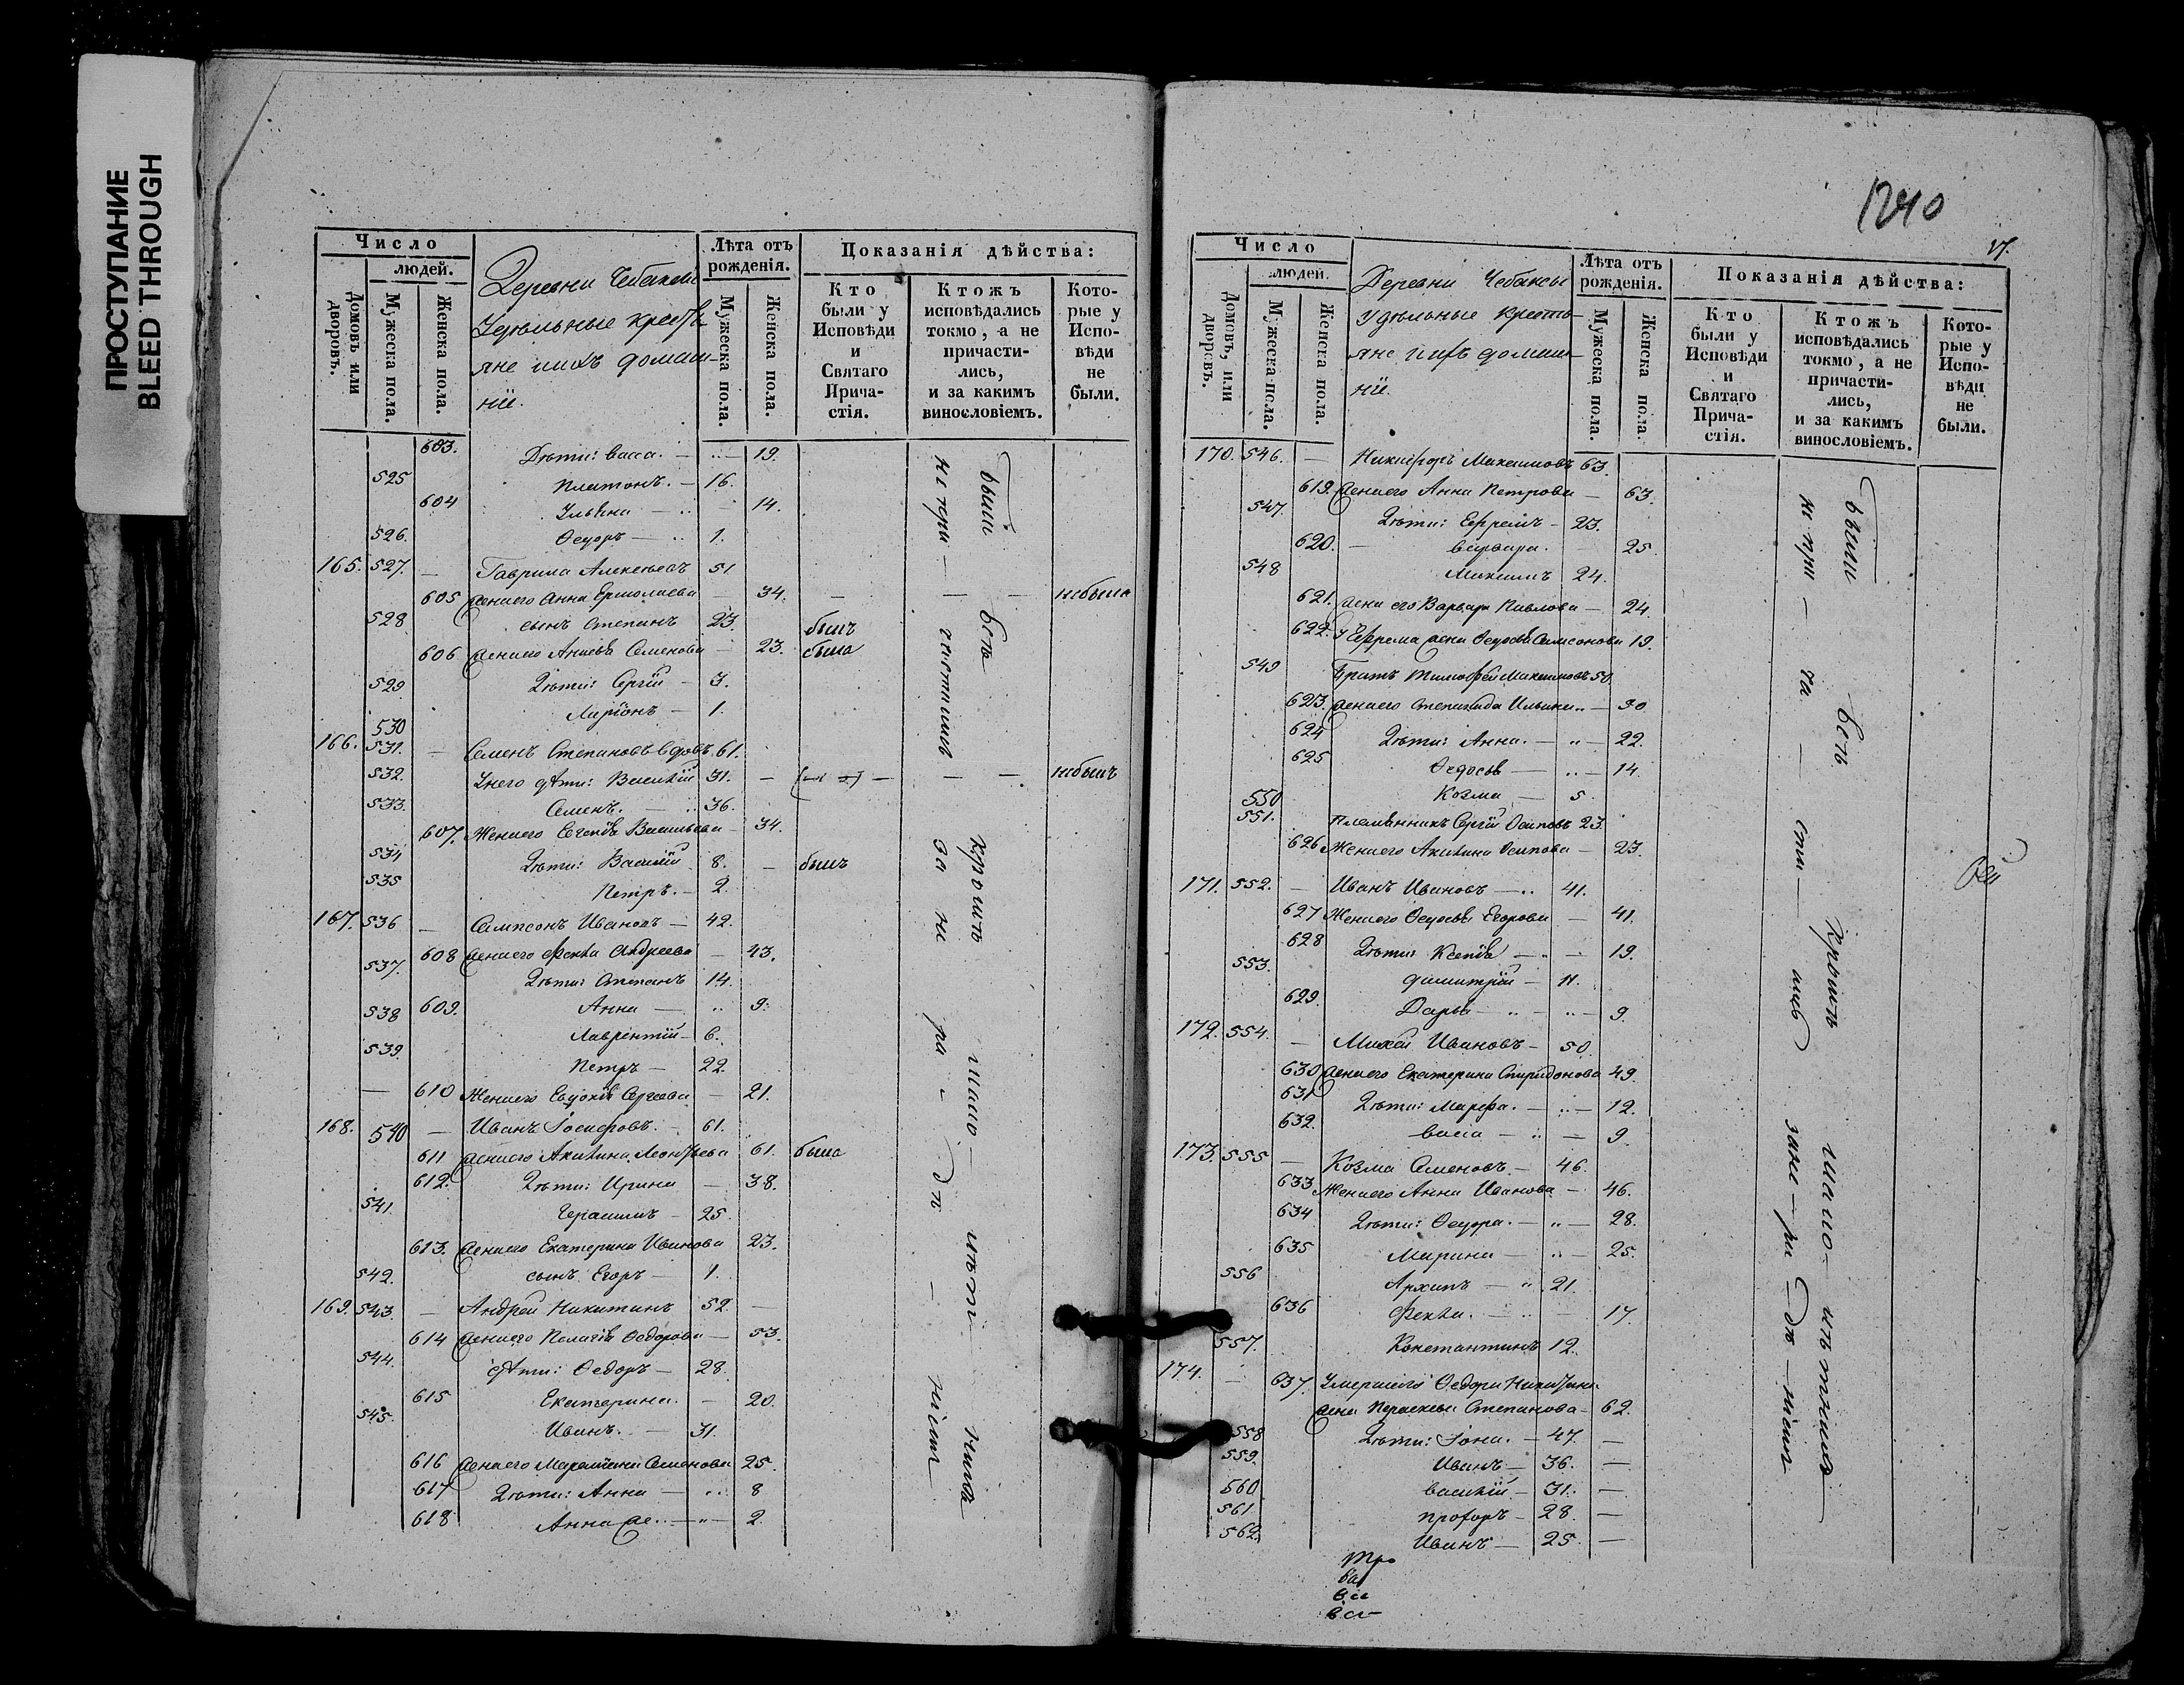 ПРОСТУПАНИЕ
BLEED THROUGH
Число
людей.
Домовъ или дворовъ.
Мужеска пола.
Женска пола.
Деревни Чебаксы
Удѣльные кресть-
яне и ихъ домаш-
нiе.
Лѣта отъ рожденія.
Мужеска пола.
Женска пола.
Показанія дѣйства:
Кто были у Исповѣди и Святаго Прича-стія.
Ктожъ исповѣдались токмо, а не причасти-лись, и за какимъ винословіемъ.
Кото-рые у Испо-вѣди не были.
603. Дѣти: Васса. — 19.
525 Платонъ. — 16.
604 Ульяна — 14.
526. Ѳедоръ — 1.
165. 527. — Гаврила Алексѣевъ 51
605 жена его Анна Ермолаева — 34. — — — небыла
528 сынъ Степанъ 23. былъ
606 жена его Семенова — 23. была
529 Дѣти: Сергiй — 3.
530 Ларiонъ — 1.
166. 531. — Семенъ Степановъ вдовъ. 61.
532. У него дѣти: Василiй 31. — — — — небылъ
533. Семенъ. — 36.
607. Жена его Евгенiя Васильева — 34.
534 Дѣти: Василiй 8. — былъ
535 Петръ. — 2.
167. 536 — Сампсонъ Ивановъ — 42.
608 жена его Фекла Андреева — 43.
537. Дѣти: Степанъ 14.
609. Анна — 9.
538 Лаврентiй — 6.
539. Петръ — 22.
— 610 Жена его Евдокiя Сергеева — 21.
168. 540 — Иванъ Iосифовъ. — 61.
611 жена его Акилина Леонтьева 61. была
612. Дѣти: Ирина — 38.
541. Герасимъ — 25.
613. жена его Екатерина Иванова 23.
542. сынъ Егоръ — 1.
169. 543. — Андрей Никитинъ 52. —
614 жена его Пелагiя Ѳедорова — 53.
544. дѣти: Ѳедоръ — 28.
615 Екатерина. — 20.
545. Иванъ. — 31.
616 жена его Марамiана Семенова 25.
617 Дѣти: Анна — 8
618 Анна же — 2.
были
весь
кромѣ
мало-
лѣт-
нихъ
не при-
частились
за
нера-
дѣ-
нiем
1240
17.
Число
людей.
Домовъ, или дворовъ.
Мужеска пола.
Женска пола.
Деревни Чебаксы
удѣльные кресть-
яне и ихъ домаш-
нiе.
Лѣта отъ рожденія.
Мужеска пола.
Женска пола.
Показанія дѣйства:
Кто были у Исповѣди и Святаго Прича-стія.
Ктожъ исповѣдались токмо, а не причасти-лись, и за какимъ винословіемъ.
Кото-рые у Испо-вѣди не были.
170. 546. — Никифоръ Максимовъ 63.
619. жена его Анна Петрова — 63.
547. Дѣти: Ефремъ — 23.
620. — Варвара. 25
548 Максимъ 24.
621. жена его Варвара Павлова — 24
622. У Ефрема жена Ѳедосья Самсонова 19.
549 Братъ Тимофей Максимовъ 50
623. жена его Степанида Ильина — 50
624 Дѣти: Анна. — 22.
625 Ѳедосья — 14.
550 Козма — 5.
551. Племянникъ Сергiй Осиповъ 23.
626 Жена его Акилина Осипова — 23.
171. 552. — Иванъ Ивановъ — 41.
627 Жена его Ѳедосья Егорова — 41.
628 Дѣти: Ксенiя — 19.
553. Димитрiй — 11.
629. Дарья — 9.
172. 554. — Михей Ивановъ — 50.
630 жена его Екатерина Спиридонова 49.
631 Дѣти: Марфа. — 12.
632. Васса — 9.
173. 555 — Козма Семеновъ. — 46.
633 Жена его Анна Иванова — 46.
634 Дѣти: Ѳедора. — 28.
635 Марина — 25.
556 Архипъ — 21.
636 Фекла. — 17.
557. Константинъ 12.
174. — 637. Умершаго Ѳедора Никитина
жена Параскева Степанова — 62.
558 Дѣти: Iона. — 47. —
559. Иванъ — 36. —
560 Василiй — 31. —
561 Прохоръ — 28. —
562. Иванъ — 25. —
были
весь
кромѣ
мало-
лѣтнихъ
не при-
ча-
сти-
лись
за не-ра-дѣ-нiем